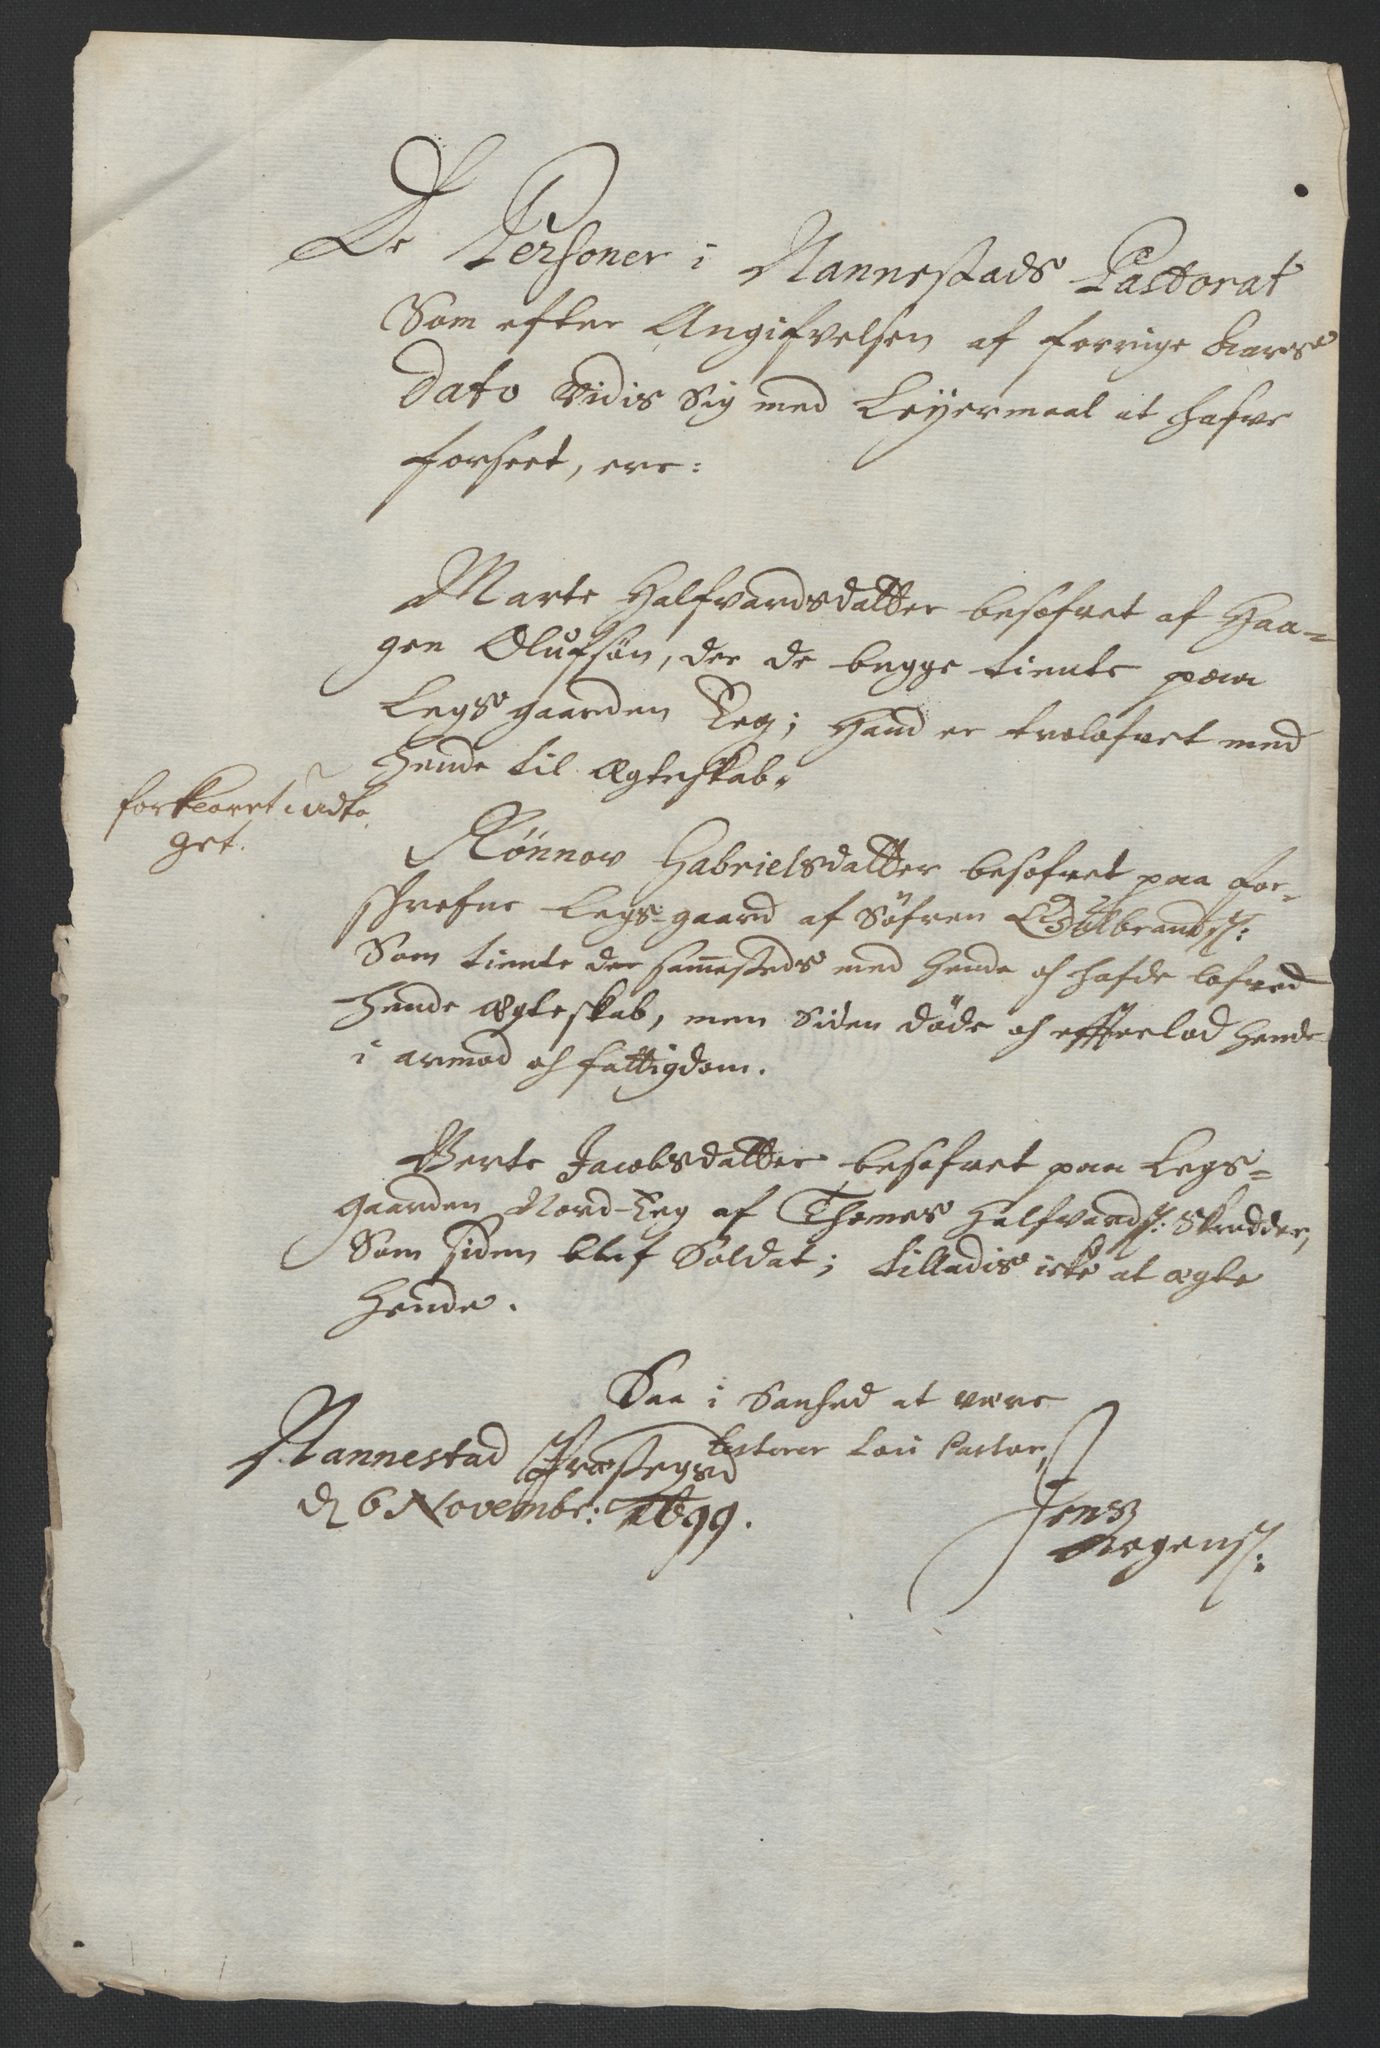 De Personer i Nannestads Pastorat
Som efter Angifvelsen af forrige Aars
Dato vidis sig med Leyermaal at hafve
forseet, ere:
Marte Halfvardsdatter besofvet af Haa=
gen Olufsøn, der de begge tiente paa
Legsgaarden Teg; Hand er trolofvet med
hende til Ægteskab.
forklaret i udto
get.
Rønnov Gabrielsdatter besofvet paa for=
schrefne Legs-gaard af Søfren Gulbrands:
Som tiente der sammesteds med hende oh hafde lofved
hende Ægteskab, men siden døde oh efterlod hende
i armod oh fattigdom.
Berte Jacobsdatter besofvet paa Legs=
gaarden Nord-Teg af Thomes Halfvards: Skredder,
Som siden blef Soldat; tilladis icke at ægte
hende.
Saa i Sanhed at være
testerer Loci Pastor,
Nannestad Præstegrd
d 6 Novembr: 1699.
Jens
Mogens: